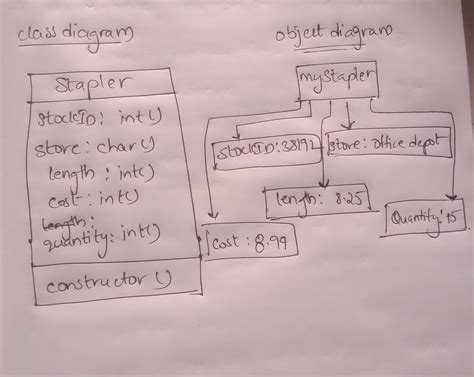 class diagram
Stapler
stockID: int()
store: char()
length: int()
cost: int()
length:
quantity: int()
constructor()
object diagram
myStapler
stockID: 38192
store: office depot
length: 8.25
Quantity: 15
Cost: 8.99